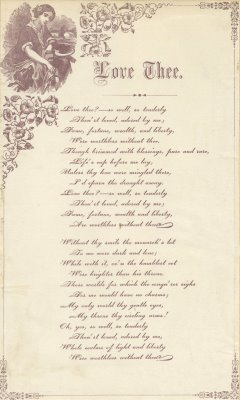 I
Love Thee.
Love thee?—so well, so tenderly
Thou'rt loved, adored by me;
Fame, fortune, wealth, and liberty,
Were worthless without thee.
Though brimmed with blessings, pure and rare,
Life's cup before me lay,
Unless thy love were mingled there,
I'd spurn the draught away.
Love thee?—so well, so tenderly
Thou'rt loved, adored by me;
Fame, fortune, wealth and liberty,
Are worthless without thee.
Without thy smile the monarch's lot
To me were dark and lone;
While with it, ev'n the humblest cot
Were brighter than his throne.
Those worlds for which the conqu'ror sighs
For me would have no charms;
My only world thy gentle eyes,
My throne thy circling arms!
Oh, yes, so well, so tenderly
Thou'rt loved, adored by me;
Whole realms of light and liberty
Were worthless without thee.